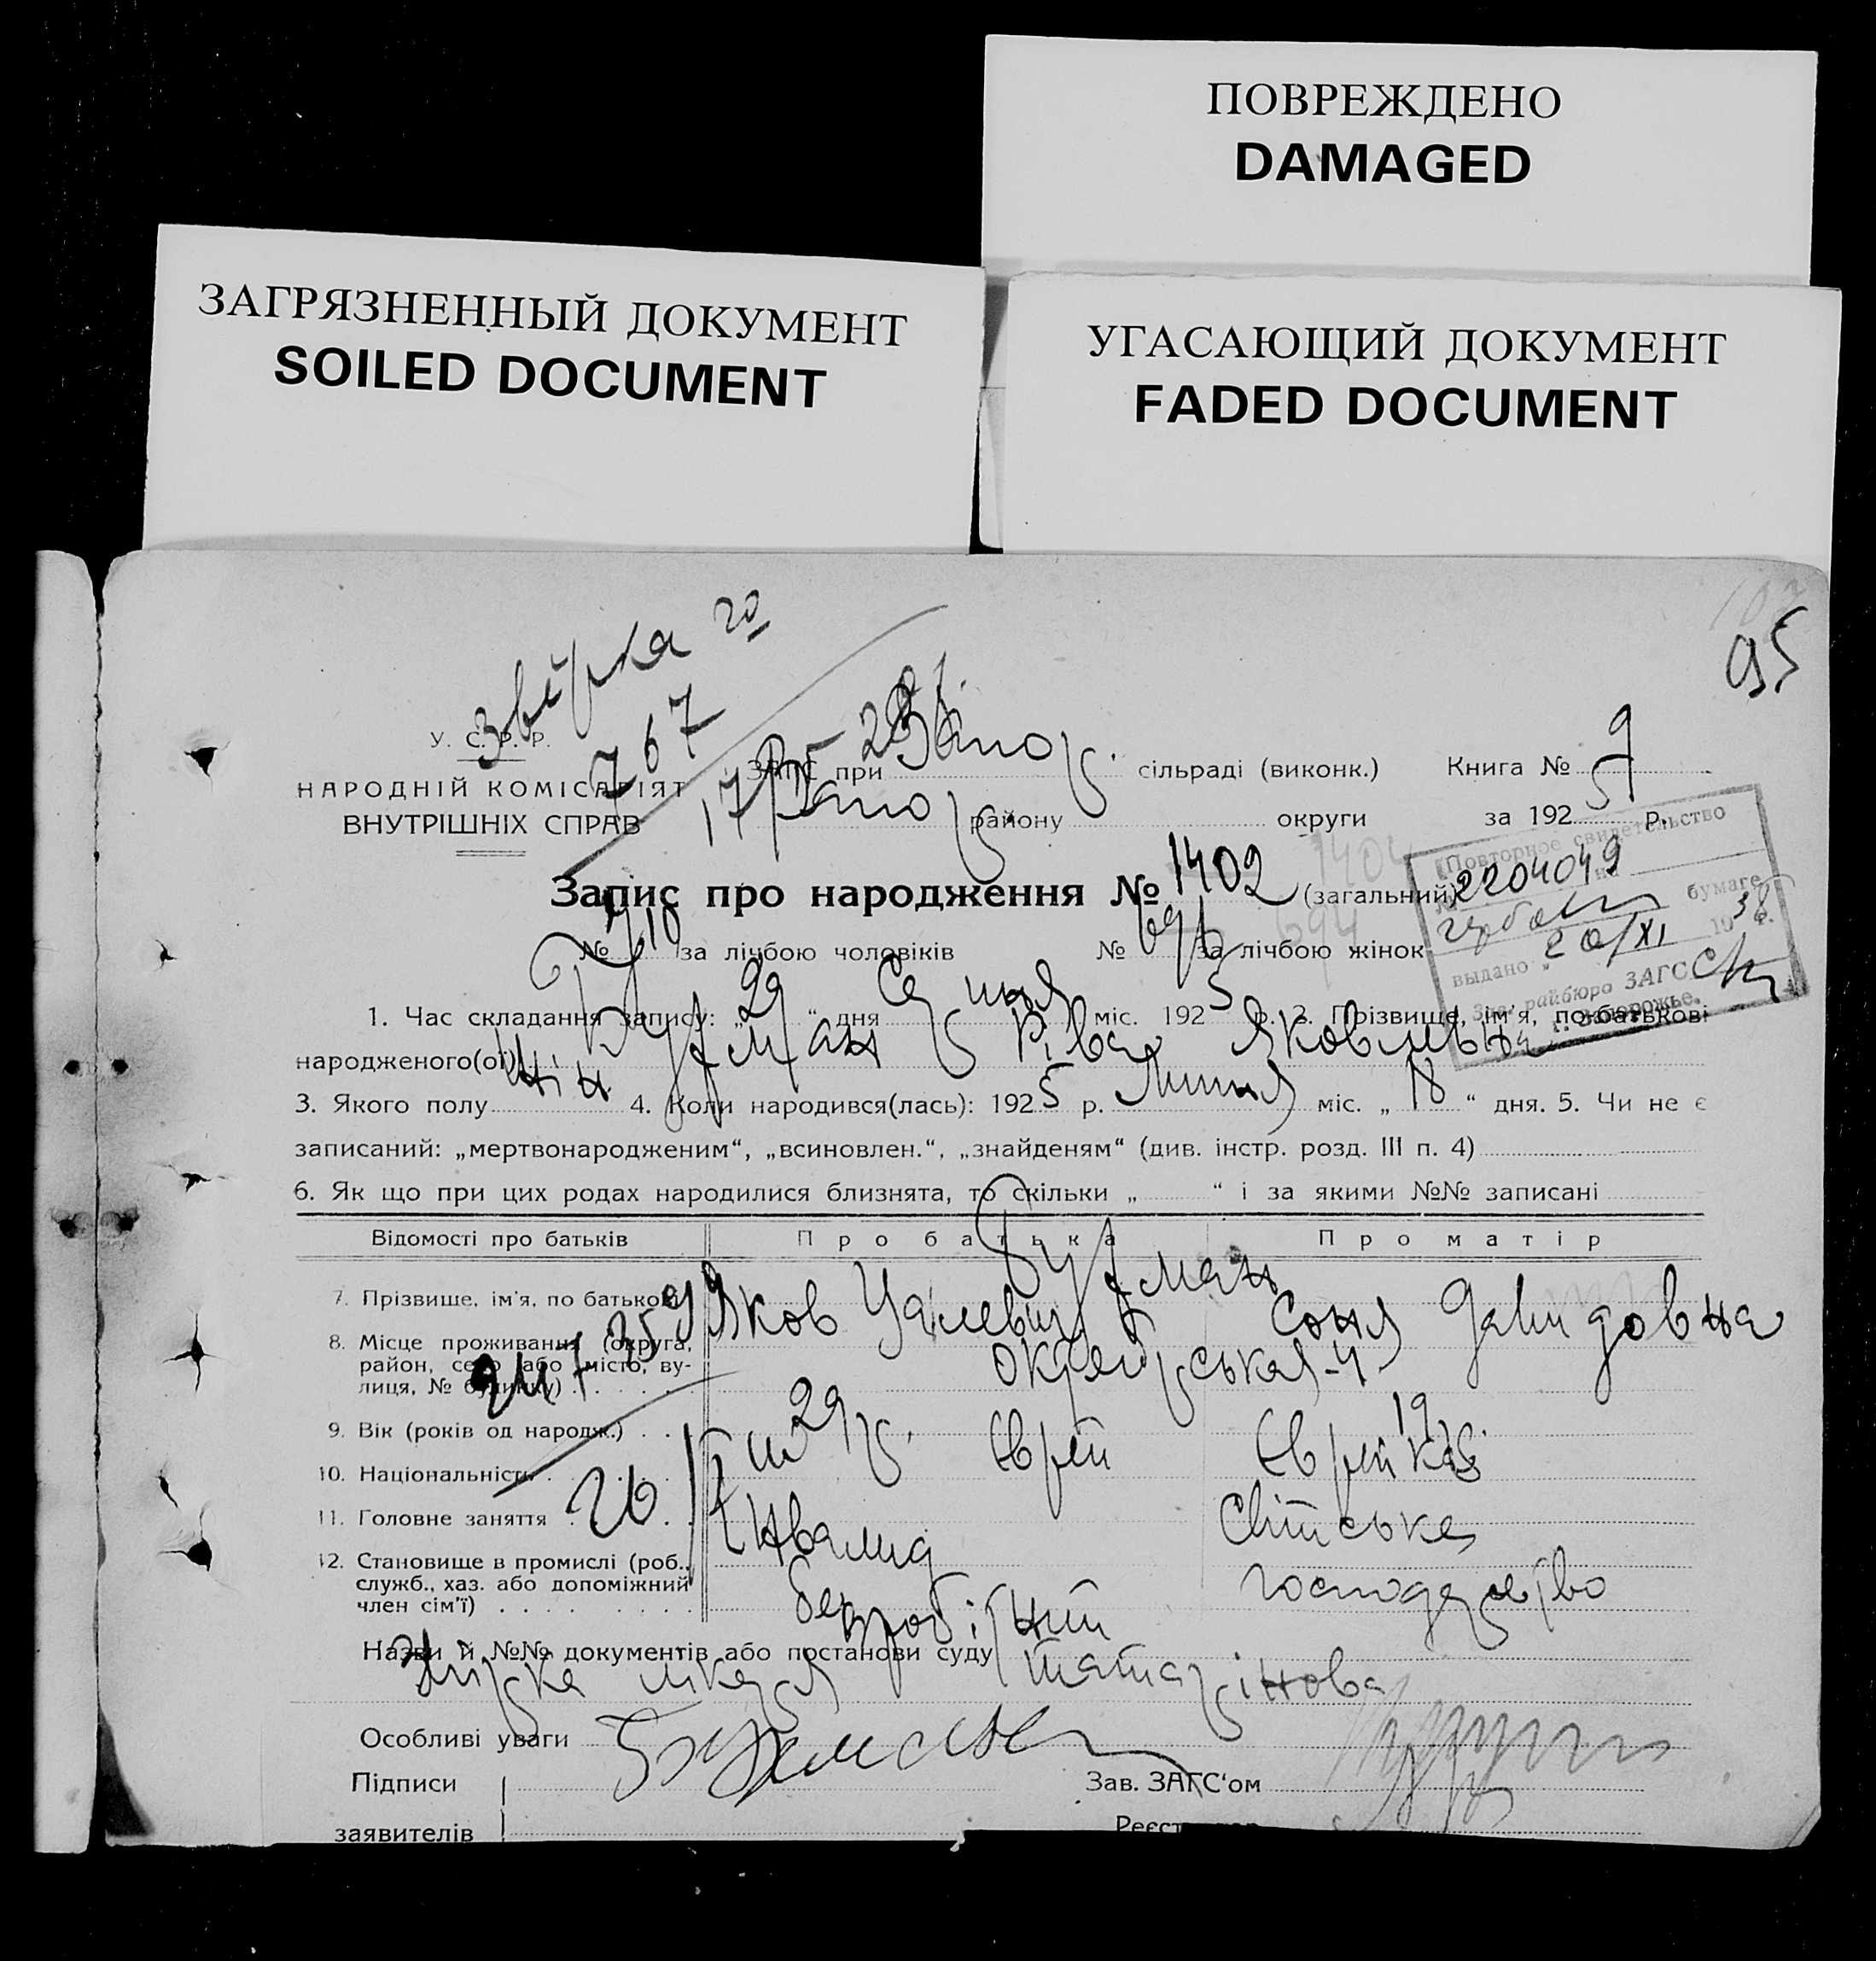 ПОВРЕЖДЕНО
DAMAGED
ЗАГРЯЗНЕННЫЙ ДОКУМЕНТ
SOILED DOCUMENT
УГАСАЮЩИЙ ДОКУМЕНТ
FADED DOCUMENT
95
Звірка
767
У. С. Р. Р.
НАРОДНІЙ КОМІСАРІЯТ
ВНУТРІШНІХ СПРАВ
ЗАГС при сільраді (виконк.) Книга № 9
району округи за 192 5 р.
Запис про народження № 1402 (загальний)
№ 710 за лічбою чоловіків № за лічбою жінок
Повторное свидетельство
2204049 на
бумаге
выдано „20/XI 1938 г.
Зав. райбюро ЗАГС
г. Запорожье.
1. Час складання запису: „29“ дня міс. 1925 р. 2. Прізвище, ім'я, по батькові
народженого(ої) Гузман Ріва Яковлевна
3. Якого полу жін 4. Коли народився(лась): 1925 р. Липня міс. „18“ дня. 5. Чи не є
записаний: „мертвонародженим“, „всиновлен.“, „знайденям“ (див. інстр. розд. III п. 4)
6. Як що при цих родах народилися близнята, то скільки „ “ і за якими №№ записані
Відомості про батьків Про батька Про матір
Гузман
7. Прізвище, ім'я, по батькові Яков Соня Давидовна
8. Місце проживання (округа,
район, село або місто, ву-
лиця, № будинку)
9. Вік (років од народж.) 29 р. 19 р.
10. Національність Єврей Єврейка
11. Головне заняття Інвалид Сільське
12. Становище в промислі (роб.,
служб., хаз. або допоміжний
член сім'ї) безробітний господарство
Назви й №№ документів або постанови суду
Татарінова
Особливі уваги
Підписи Зав. ЗАГС'ом
заявителів